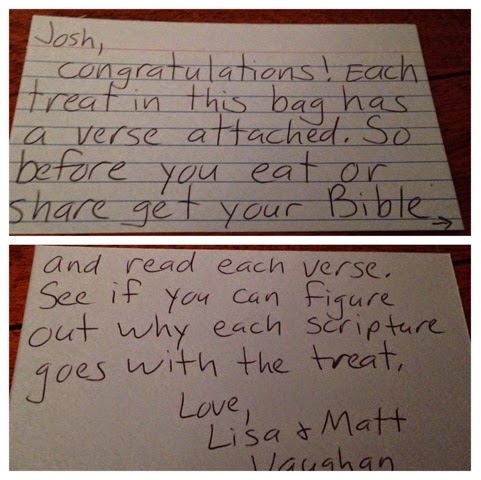 Josh,
Congratulations! Each
treat in this bag has
a verse attached. So
before you eat or
share get your Bible →
and read each verse.
See if you can figure
out why each scripture
goes with the treat.
Love,
Lisa & Matt
Vaughan